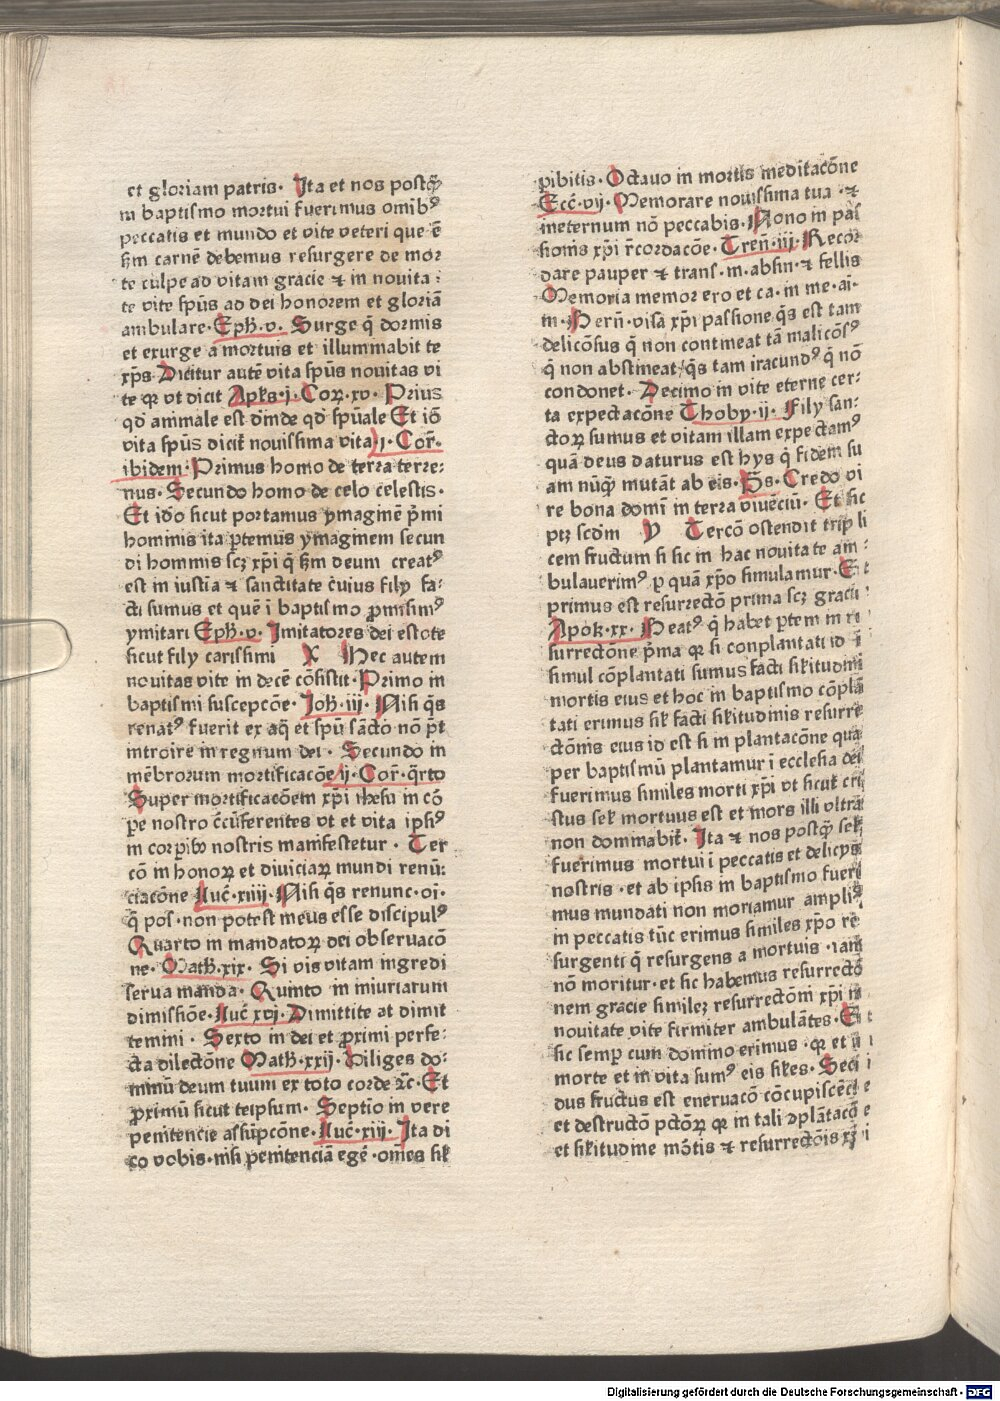 et gloriam patris. Ita et nos postq̄
in baptismo mortui fuerimus omībꝰ
peccatis et mundo et vite veteri que ē
scd̄m carnē debemus resurgere de mor
te culpe ad vitam gracie ⁊ in nouita:
te vite spūs ad dei honorem et gloriā
ambulare. Eph̄.v. Surge q̄ dormis
et exurge a mortuis et illuminabit te
xp̄s Dicitur autē vita spūs nouitas vi
te qꝛ vt dicit Apl̄s.j.Coꝝ.xv. Prius
qd̄ animale est dēinde qd̄ spūale Et iō
vita spūs dicit̄ nouissima vita.j.Cor̄.
ibidem.Primus homo de terra terre:
nus. Secundo homo de celo celestis.
Et idō sicut portamus ymaginē p̄mi
hominis ita ꝑtemus ymaginem secun
di hominis scꝫ xp̄i q̄ scd̄m deum creatꝰ
est in iusticia ⁊ sanctitate cuius filij fa:
cti sumus et quē ī baptismo ꝓmisimꝰ
ymitari Eph̄.v. Imitatores dei estote
sicut filij carissimi X Hec autem
nouitas vite in decē cōsistit. Primo in
baptismi suscepcōe. Joh̄.iij. Nisi q̄s
renatꝰ fuerit ex aq̄ et spū sācto nō p̄t
introire in regnum dei. Secundo in
mēbrorum mortificacōe ij.Cor̄.q̄rto
Super mortificacōem xp̄i ihesu in cō
ꝑe nostro c̄cūferentes vt et vita ipsiꝰ
in corꝑibꝰ nostris manifestetur. Ter
cō in honoꝝ et diuiciaꝝ mundi renū:
ciacōne Luc̄.xiiij. Nisi q̄s renunc.oī.
q̄ pos.non potest meus esse discipulꝰ
Quarto in mandatoꝝ dei obseruacō
ne. Math̄.xix. Si vis vitam ingredi
serua manda. Quinto in iniuriarum
dimissiōe. Luc̄ xvj. Dimittite at dimit
temini. Sexto in dei et ꝓximi perfe:
cta dilectōne Math̄.xxij. Diliges do:
minū deum tuum ex toto corde ⁊c. Et
ꝓximū sicut teipsum. Septīo in vere
penitencie assūpcōne. Luc̄.xiij. Ita di
co vobis.nisi penitenciā egē.omēs sil̄
pibitis. Octauo in mortis meditacōne
Ecc̄.vij. Memorare nouissima tua.⁊
ineternum nō peccabis. Nono in pas
sionis xp̄i r̄cordacōe. Tren̄.iij. Recor
dare pauper ⁊ trans.m.absin.⁊ fellis
Memoria memor ero et ca.in me.ai.
m. Bern̄.visa xp̄i passione q̄s est tam
delicōsus q̄ non contineat tā malicōsꝰ
q̄ non abstineat/q̄s tam iracundꝰ q̄ nō
condonet. Decimo in vite eterne cer:
ta expectacōne Thoby.ij. Filij san:
ctoꝝ sumus et vitam illam expectamꝰ
quā deus daturus est hijs q̄ fidem su
am nūq̄ mutāt ab eis. Ps. Credo vi
re bona domī in terra viuēciū. Et sic
ptꝫ scd̄m Y Tercō ostendit tripli
cem fructum si sic in hac nouitate am
bulauerimꝰ ꝑ quā xp̄o simulamur. E
primus est resurrectō prima scꝫ gracie
Apok.xx. Beatꝰ q̄ habet ꝑtem in re
surrectōne p̄ma qꝛ si conplantati id ē
simul cōplantati sumus facti sil̄itudini
mortis eius et hoc in baptismo cōplā
tati erimus sil̄ facti sil̄itudinis resurre
ctōnis eius id est si in plantacōne qua
per baptismū plantamur ī ecclesia dei
fuerimus similes morti xp̄i vt sicut cri
stus sel̄ mortuus est et mors illi vltra
non dominabit̄. Ita ⁊ nos postq̄ sel̄
fuerimus mortui ī peccatis et delicijs
nostris.et ab ipsis in baptismo fueri
mus mundati non moriamur ampliꝰ
in peccatis tūc erimus similes xp̄o re
surgenti q̄ resurgens a mortuis.iam
nō moritur.et sic habemus resurrectō
nem gracie simileꝫ resurrectōni xp̄i in
nouitate vite firmiter ambulātes. E
sic semꝑ cum domino erimus.qꝛ et ī
morte et in vita sumꝰ eis sil̄es. Secū
dus fructus est eneruacō cōcupiscēcie
et destructō pctōꝝ qꝛ in tali ꝯplātacōe
et sil̄itudine mōtis ⁊ resurrectōis xp̄i
Digitalisierung gefördert durch die Deutsche Forschungsgemeinschaft - DFG